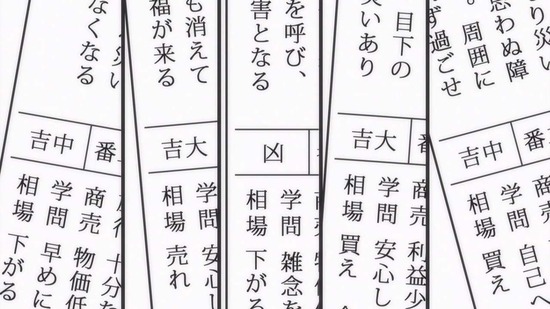 災い
なくなる
吉中 番
十分な
商売 物価低
学問 早めに
相場 下がる
も消えて
福が来る
吉大
学問 安心し
相場 売れ
を呼び、
害となる
凶
学問 雑念を
相場 下がる
目下の
いあり
吉大 番
商売 利益少
学問 安心し
相場 買え
り災い
思わぬ障
。周囲に
ず過ごせ
吉中 番
学問 自己
相場 買え